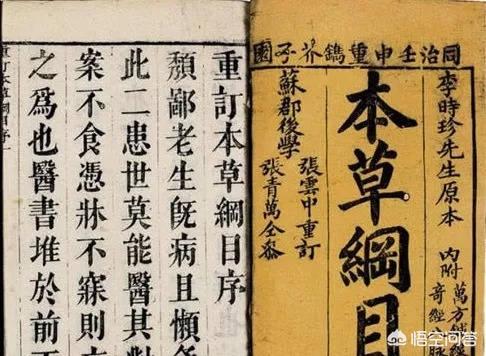 同治壬申重鐫芥子園
李時珍先生原本 內附
萬方鍼
奇經
本草綱目
蘇郡後學
張雲中重訂
張青萬仝參
重訂本草綱目序
頽鄙老生旣病且懶
此二患世莫能醫其對
案不食憑牀不寐則
之爲也醫書堆於前
重訂本草綱目序
悟空问答